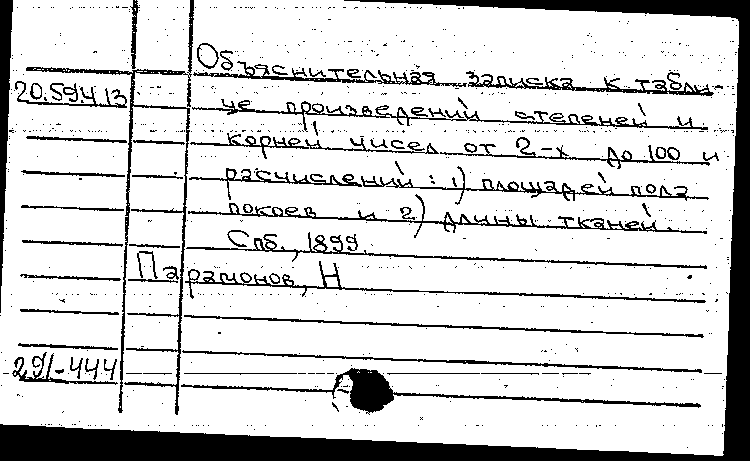 Объяснительная записка к табли-
20.59.4.13
це произведений степеней и
корней чисел от 2-х до 100 и
расчислений: 1) площадей пола
покоев и 2) длины тканей.
Спб., 1899.
Парамонов, Н
291-444